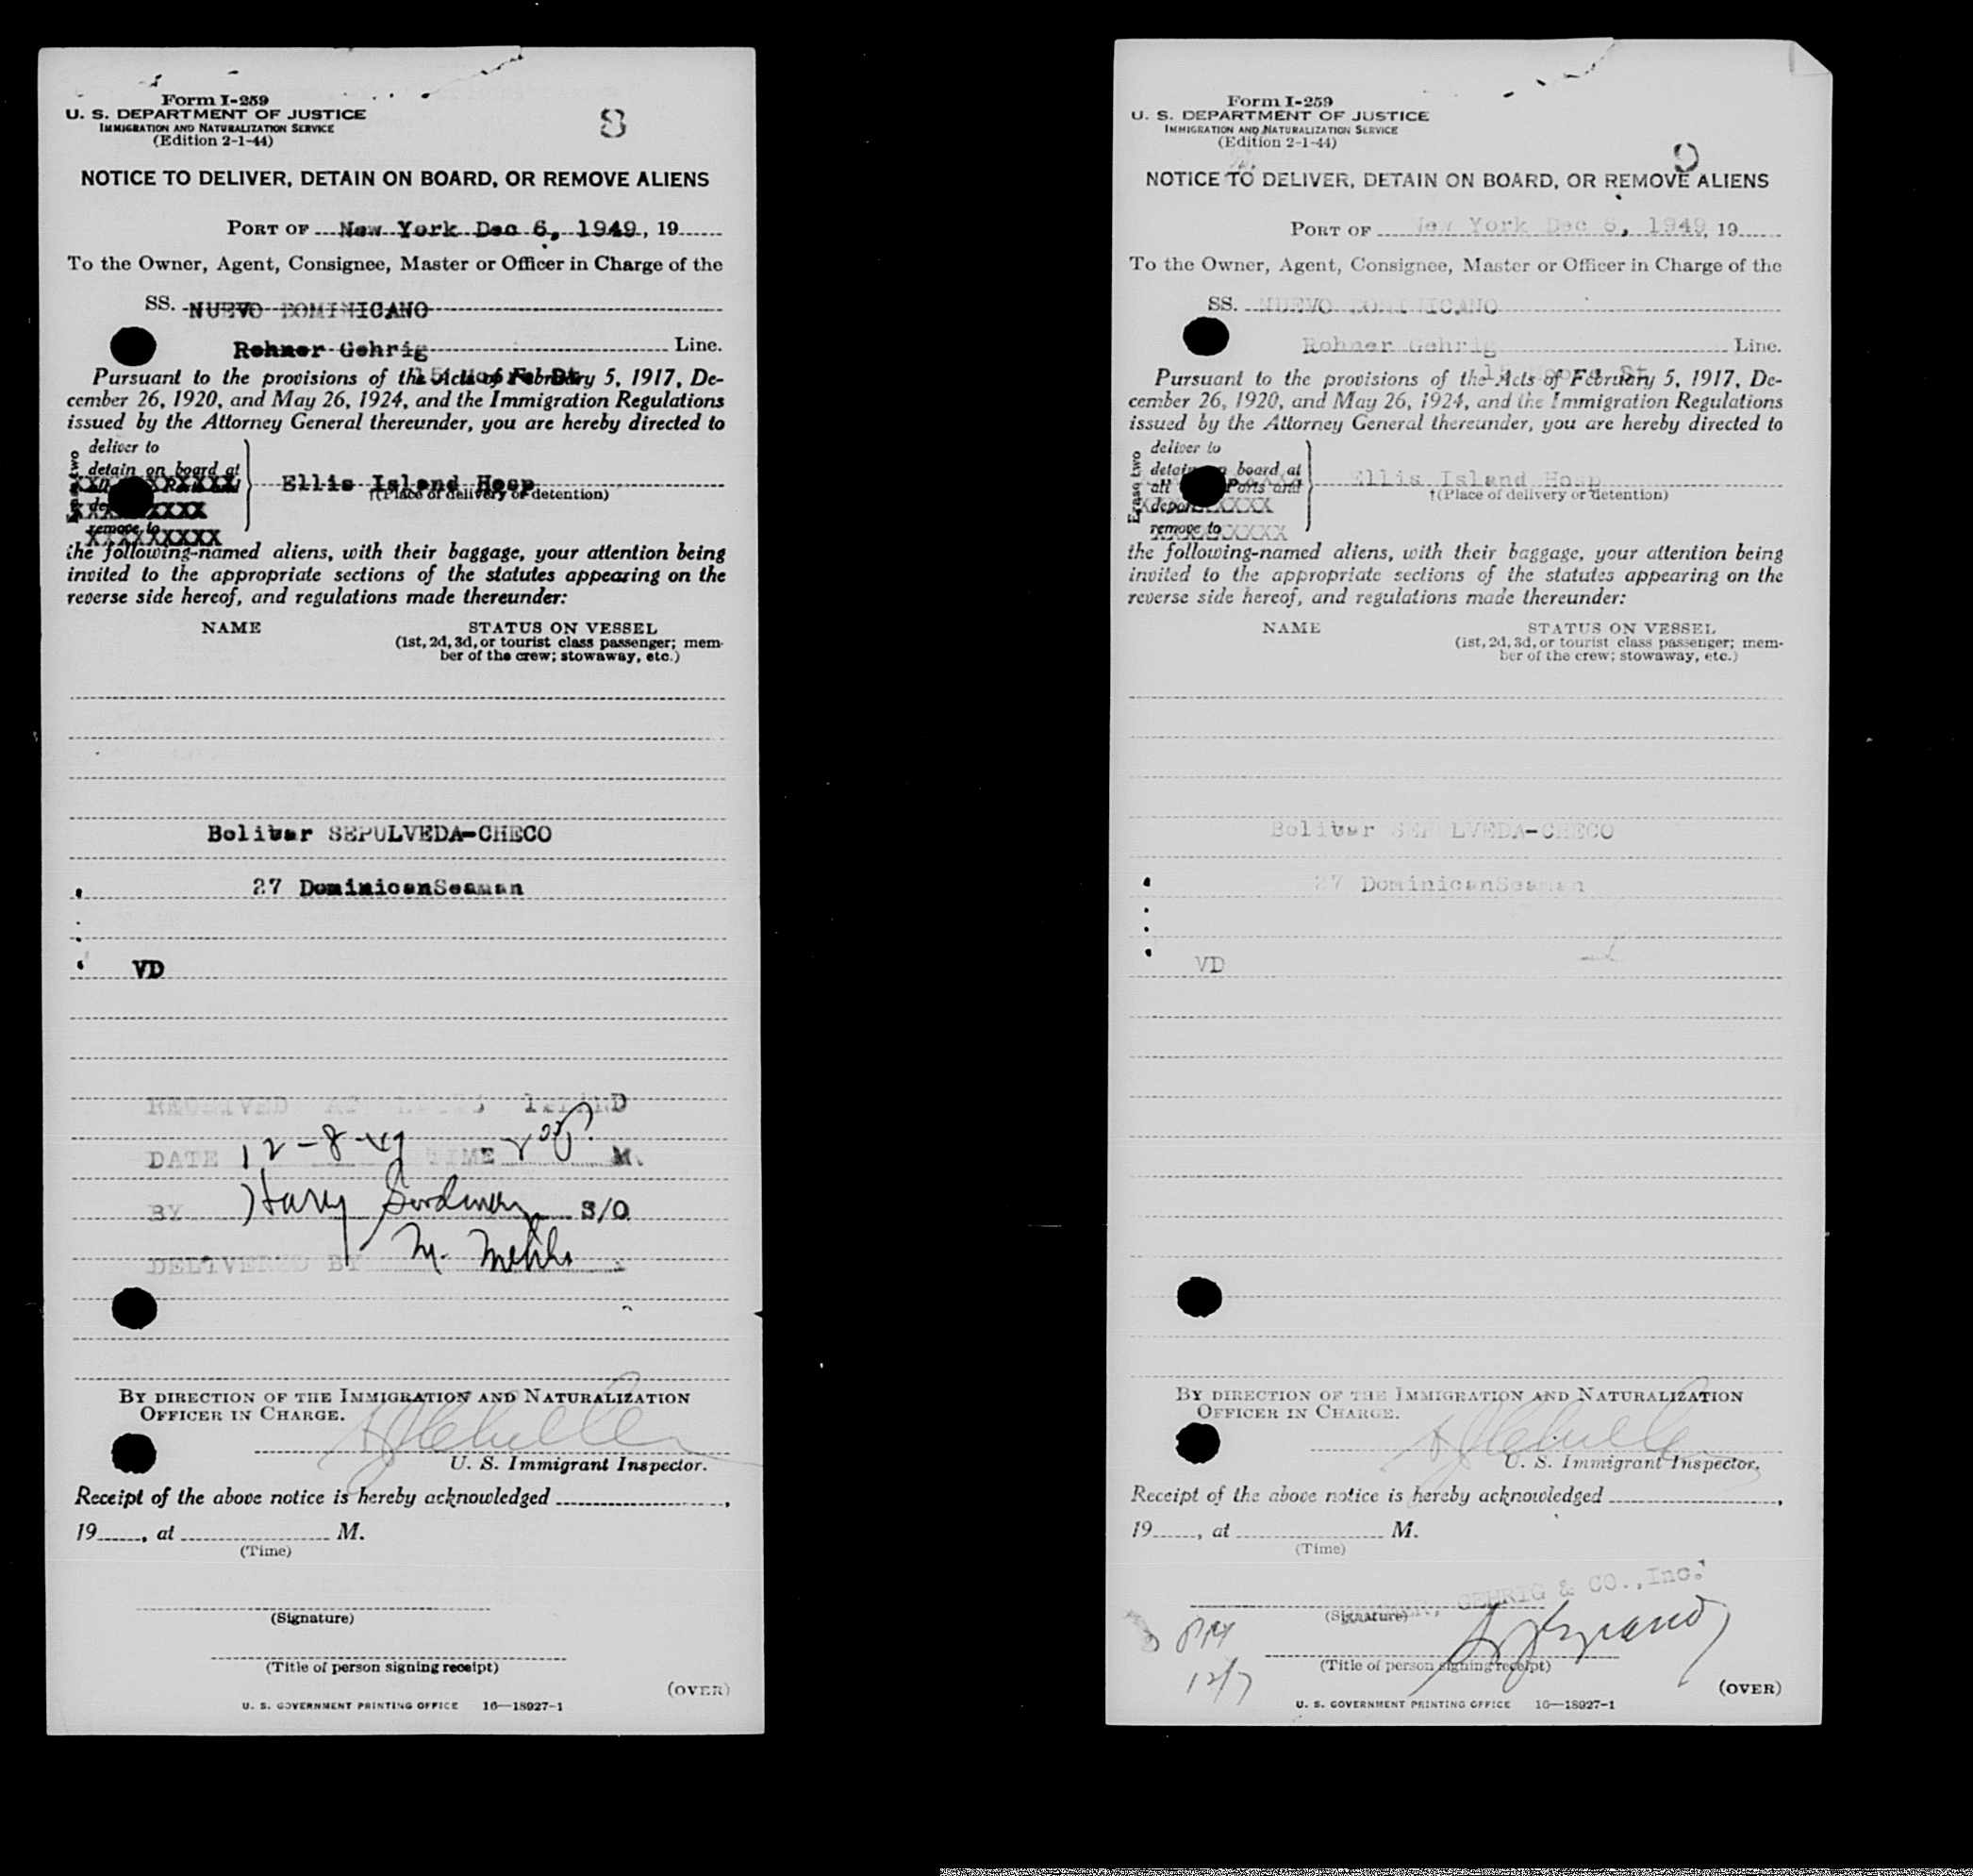 Form I-259
U. S. DEPARTMENT OF JUSTICE
IMMIGRATION AND NATURALIZATION SERVICE
(Edition 2-1-44)
8
NOTICE TO DELIVER, DETAIN ON BOARD, OR REMOVE ALIENS
PORT OF New York Dec 6, 1949, 19
To the Owner, Agent, Consignee, Master or Officer in Charge of the
SS. NUEVO DOMINICANO
Rohner Gehrig Line.
Pursuant to the provisions of the Acts of February 5, 1917, De-
cember 26, 1920, and May 26, 1924, and the Immigration Regulations
issued by the Attorney General thereunder, you are hereby directed to
deliver to
detain on board at
remove to
Ellis Island Hosp
†(Place of delivery or detention)
the following-named aliens, with their baggage, your attention being
invited to the appropriate sections of the statutes appearing on the
reverse side hereof, and regulations made thereunder:
NAME STATUS ON VESSEL
(1st, 2d, 3d, or tourist class passenger; mem-
ber of the crew; stowaway, etc.)
Bolivar SEPULVEDA-CHECO
27 DominicanSeaman
VD
RECEIVED AT ELLIS ISLAND
DATE 12-8-49 TIME M.
BY Harry S/O
DELIVERED BY M.
BY DIRECTION OF THE IMMIGRATION AND NATURALIZATION
OFFICER IN CHARGE.
U. S. Immigrant Inspector.
Receipt of the above notice is hereby acknowledged ,
19 , at M.
(Time)
(Signature)
(Title of person signing receipt)
(OVER)
U. S. GOVERNMENT PRINTING OFFICE 16—18927-1
Form I-259
U. S. DEPARTMENT OF JUSTICE
IMMIGRATION AND NATURALIZATION SERVICE
(Edition 2-1-44)
9
NOTICE TO DELIVER, DETAIN ON BOARD, OR REMOVE ALIENS
PORT OF New York Dec 6, 1949, 19
To the Owner, Agent, Consignee, Master or Officer in Charge of the
SS. NUEVO DOMINICANO
Rohner Gehrig Line.
15 Moore St
Pursuant to the provisions of the Acts of February 5, 1917, De-
cember 26, 1920, and May 26, 1924, and the Immigration Regulations
issued by the Attorney General thereunder, you are hereby directed to
Erase two
deliver to
detain on board at
all Ports and
deport
remove to
Ellis Island Hosp
†(Place of delivery or detention)
the following-named aliens, with their baggage, your attention being
invited to the appropriate sections of the statutes appearing on the
reverse side hereof, and regulations made thereunder:
NAME STATUS ON VESSEL
(1st, 2d, 3d, or tourist class passenger; mem-
ber of the crew; stowaway, etc.)
Bolivar SEPULVEDA-CHECO
27 DominicanSeaman
VD
BY DIRECTION OF THE IMMIGRATION AND NATURALIZATION
OFFICER IN CHARGE.
U. S. Immigrant Inspector.
Receipt of the above notice is hereby acknowledged ,
19 , at M.
(Time)
GEHRIG & CO., Inc.
(Signature)
12/7
(Title of person signing receipt)
(OVER)
U. S. GOVERNMENT PRINTING OFFICE 16—18927-1